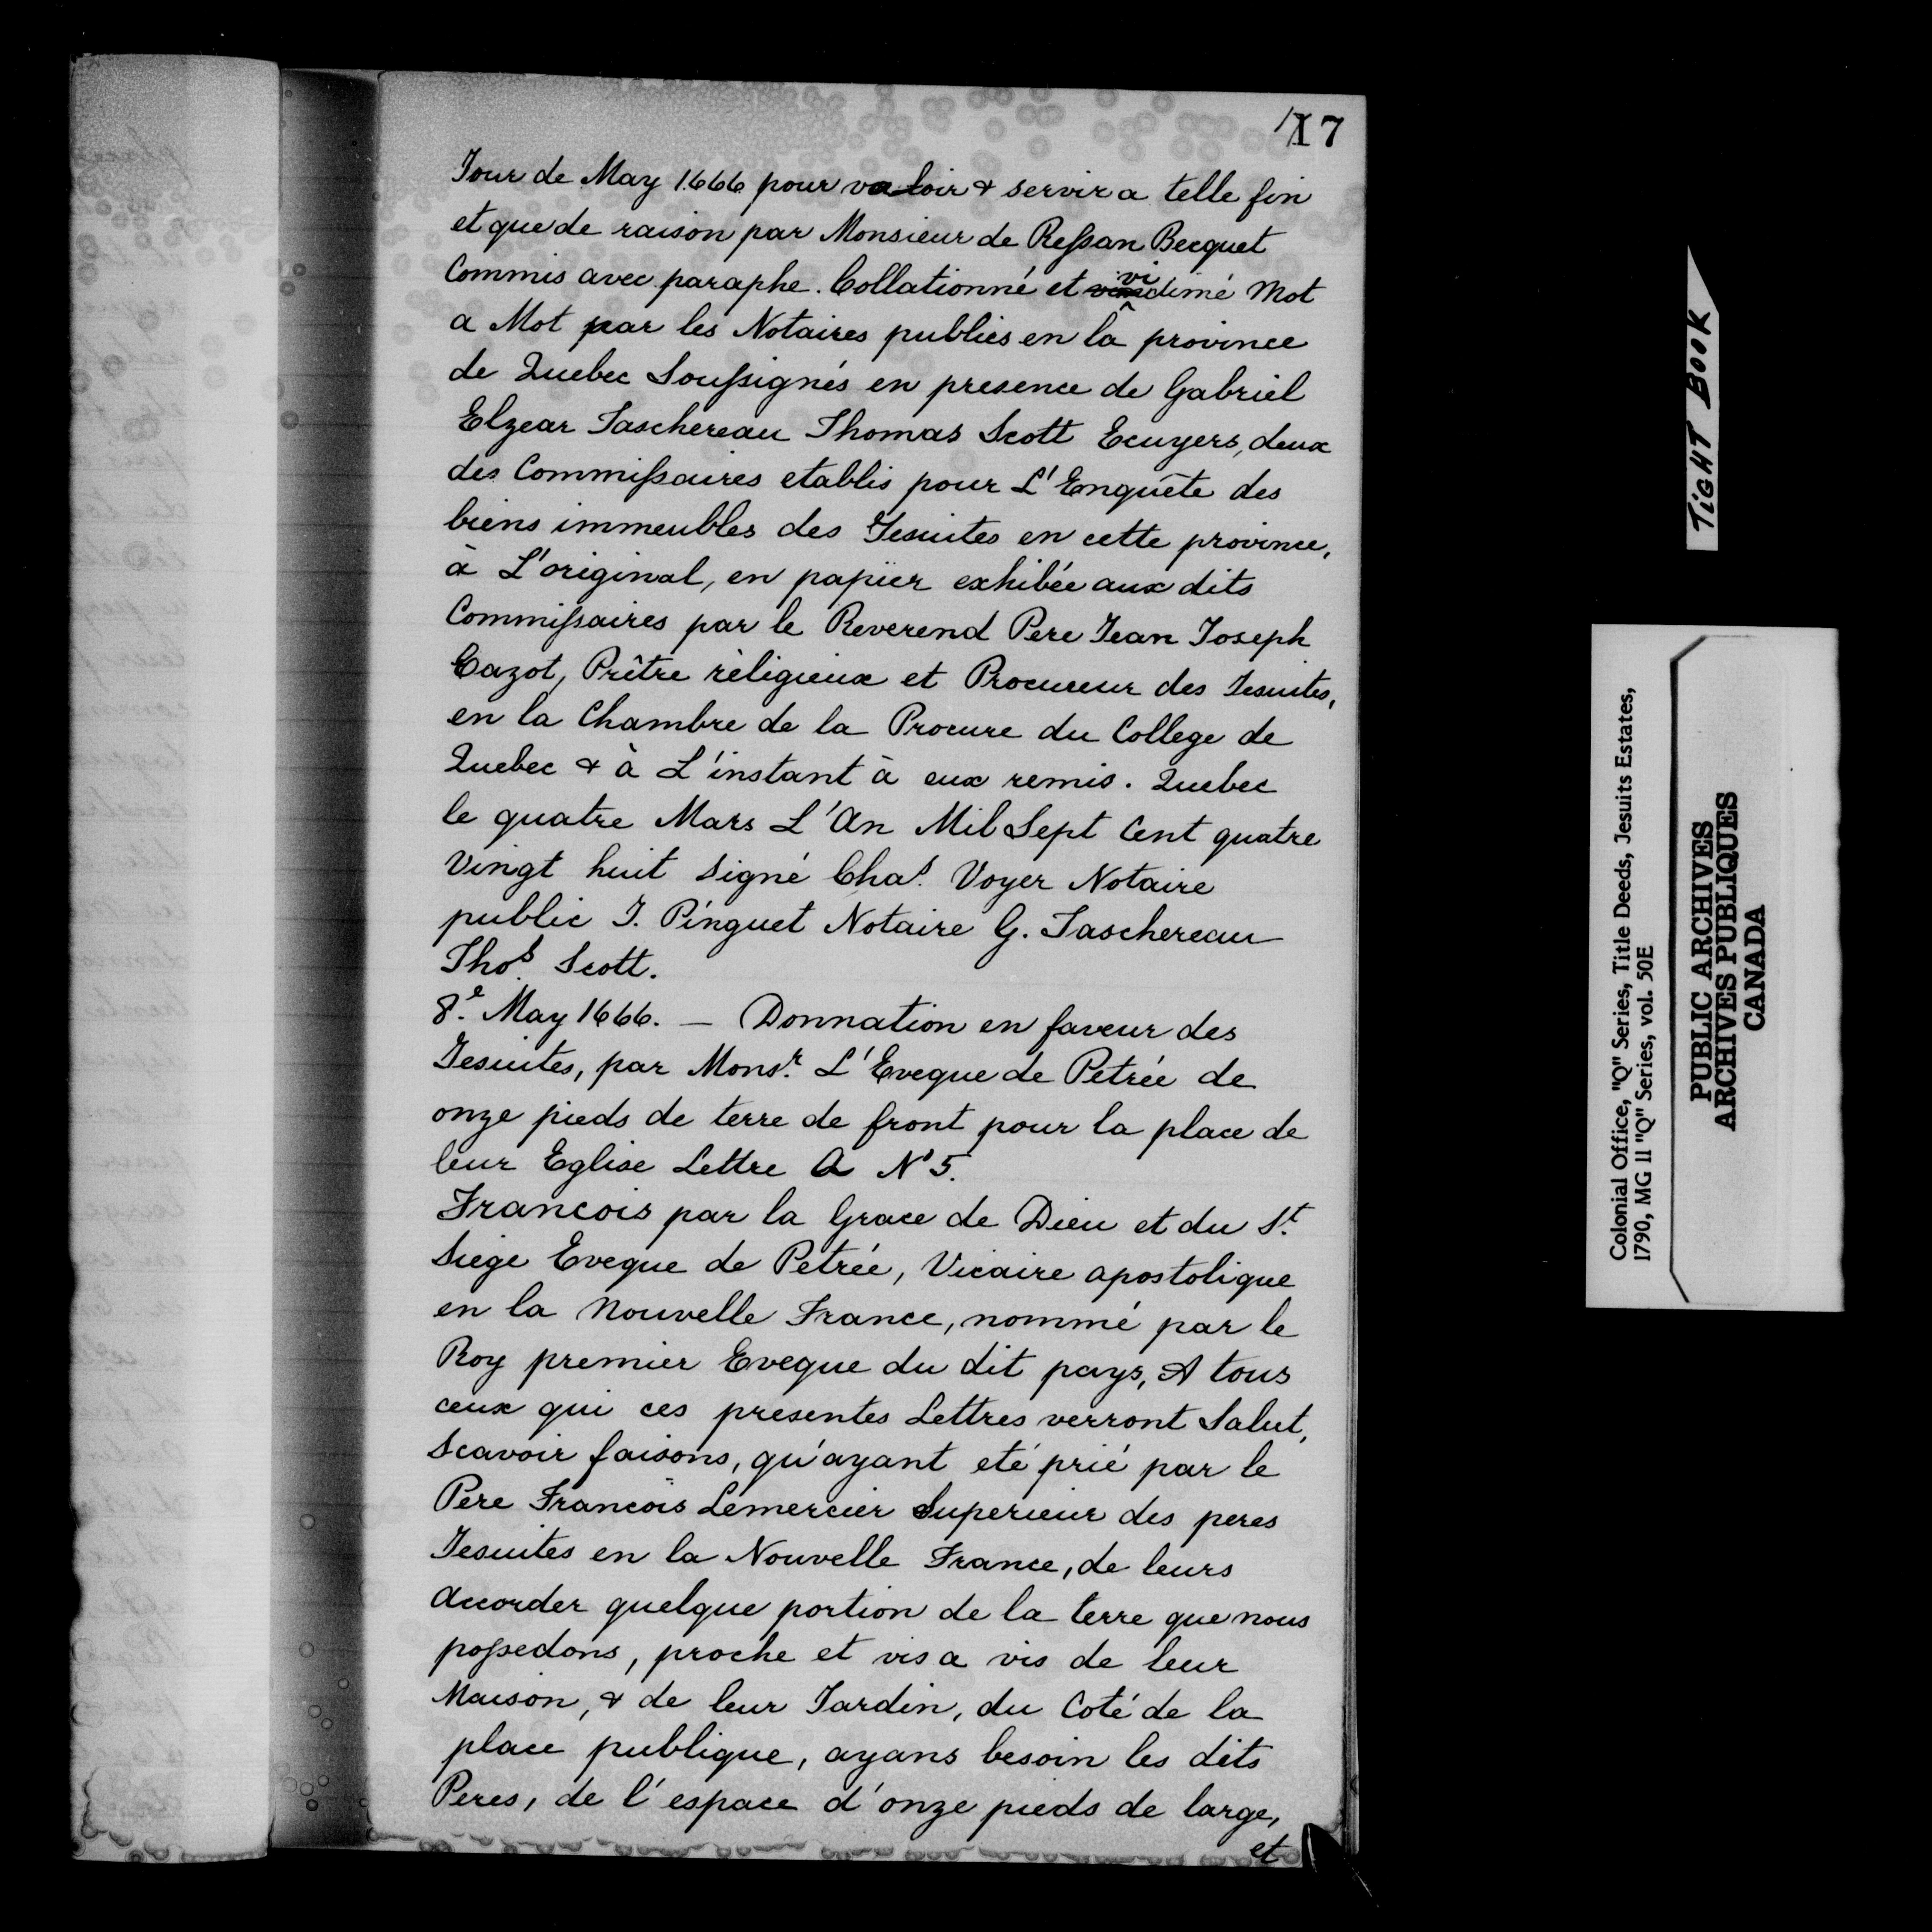 17
Jour de May 1666 pour valoir & servir a telle fin
et que de raison par Monsieur de Reſsan Becquet
Commis avec paraphe. Collationné et vidimé Mot
a Mot par les Notaires publics en la province
de Quebec Souſsignés en presence de Gabriel
Elzear Taschereau Thomas Scott Ecuyers, deux
des Commiſsaires etablis pour L'Enquête des
biens immeubles des Jesuites en cette province,
à L'original, en papier exhibée aux dits
Commiſsaires par le Reverend Pere Jean Joseph
Cazot, Prêtre réligieux et Procureur des Jesuites,
en la Chambre de la Procure du College de
Quebec & à L'instant à eux remis. Quebec
le quatre Mars L'An Mil Sept Cent quatre
Vingt huit Signé Chas. Voyer Notaire
public J. Pinguet Notaire G. Taschereau
Thos. Scott.
8e. May 1666. — Donnation en faveur des
Jesuites, par Monsr. L'Eveque de Petrée de
onze pieds de terre de front pour la place de
leur Eglise Lettre A No 5.
Francois par la Grace de Dieu et du St.
Siege Eveque de Petrée, Vicaire apostolique
en la Nouvelle France, nommé par le
Roy premier Eveque du dit pays, A tous
ceux qui ces presentes Lettres verront Salut,
Scavoir faisons, qu'ayant eté prié par le
Pere Francois Lemercier Superieur des peres
Jesuites en la Nouvelle France, de leurs
accorder quelque portion de la terre que nous
poſsedons, proche et vis a vis de leur
Maison, & de leur Jardin, du Coté de la
place publique, ayans besoin les dits
Peres, de l'espace d'onze pieds de large,
et
TIGHT BOOK
Colonial Office, "Q" Series, Title Deeds, Jesuits Estates,
1790, MG 11 "Q" Series, vol. 50E
PUBLIC ARCHIVES
ARCHIVES PUBLIQUES
CANADA